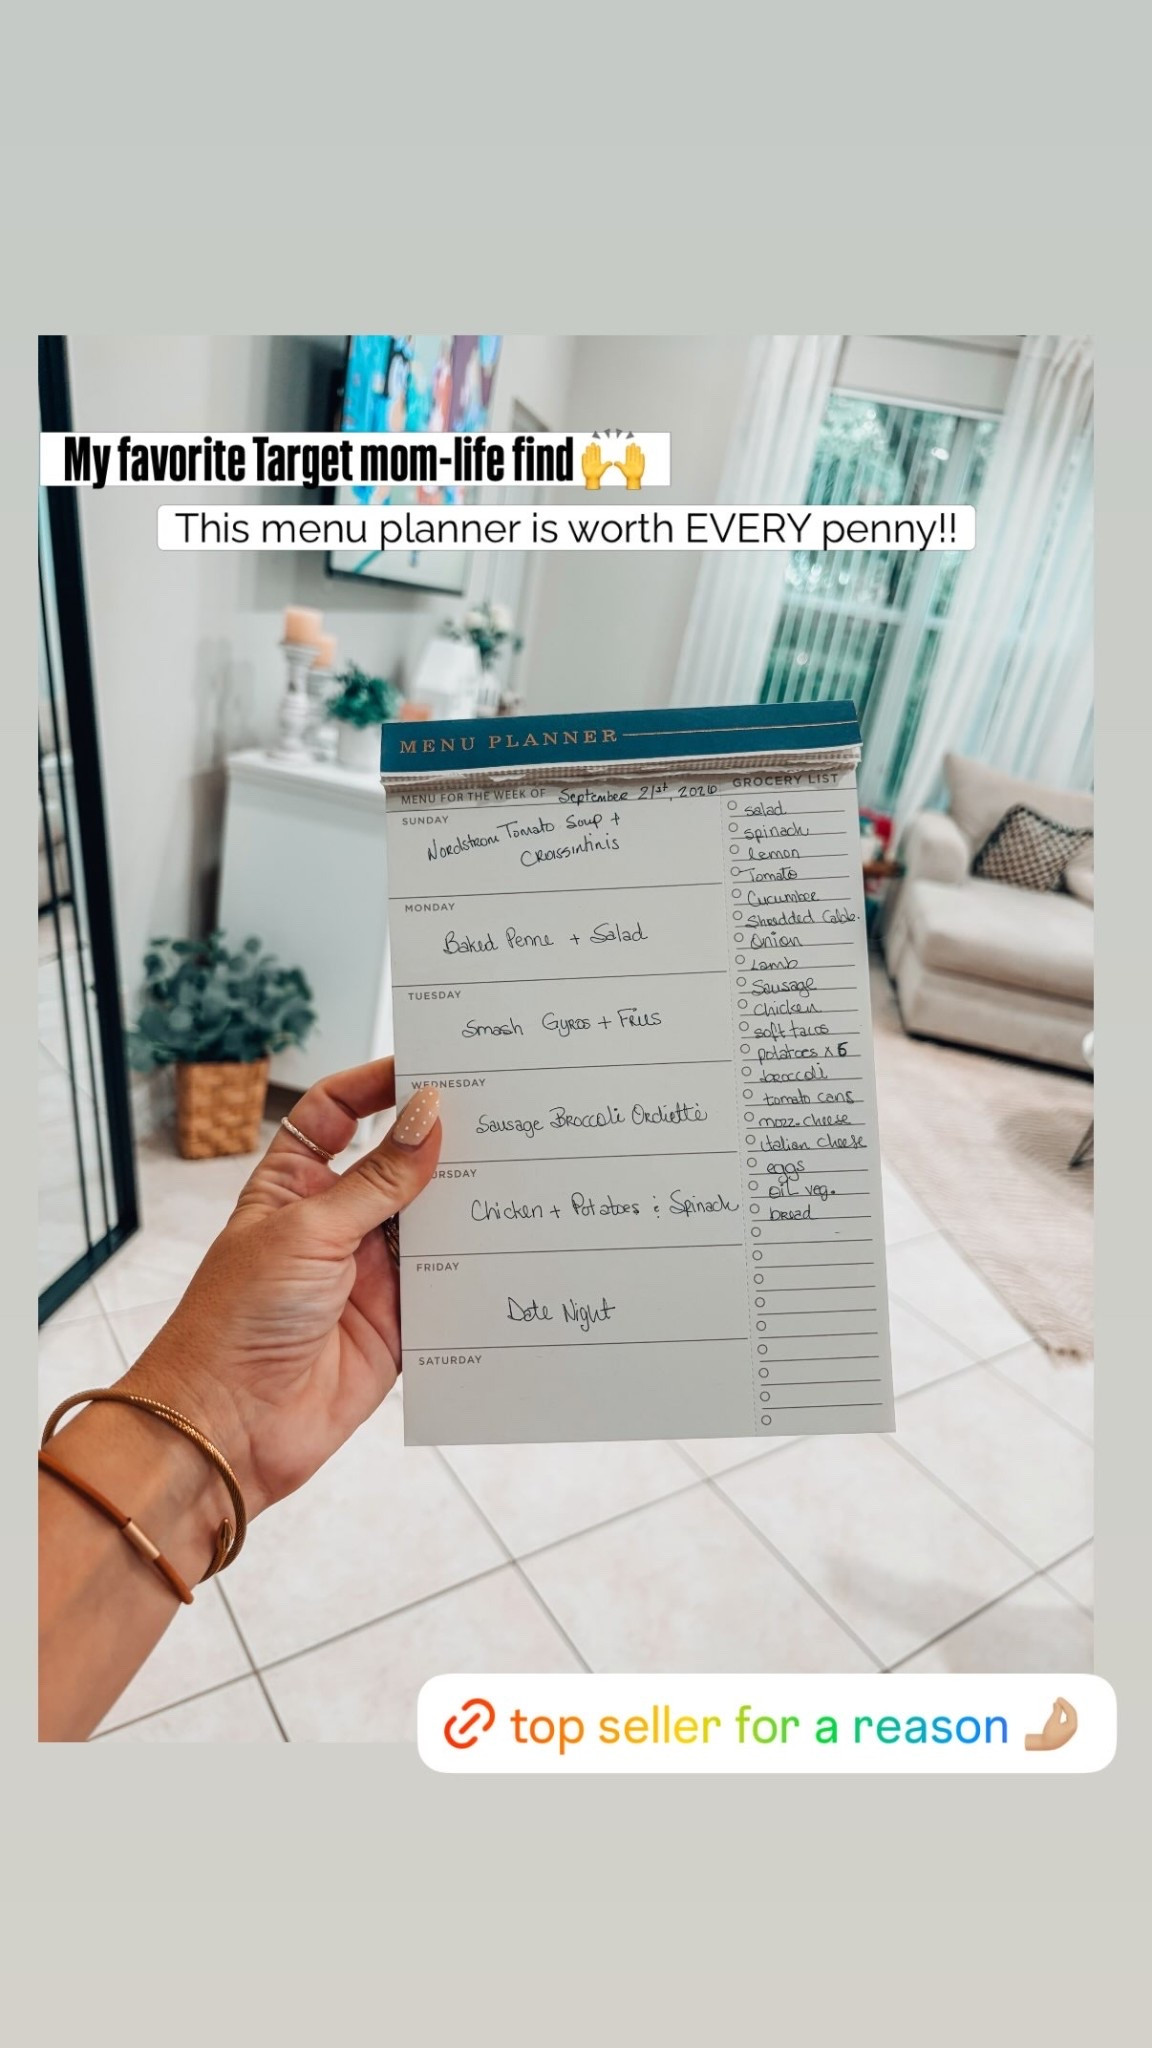 My favorite Target mom-life find 🙌
This menu planner is worth EVERY penny!!
MENU PLANNER
MENU FOR THE WEEK OF September 21st, 2026
SUNDAY
Nordstrom Tomato Soup +
Croissintinis
MONDAY
Baked Penne + Salad
TUESDAY
Smash Gyros + Fries
WEDNESDAY
Sausage Broccoli Ordiette
URSDAY
Chicken + Potatoes & Spinach
FRIDAY
Date Night
SATURDAY
GROCERY LIST
salad
spinach
lemon
Tomato
Cucumber
Shredded Cabb.
Onion
Lamb
Sausage
Chicken
soft tacos
potatoes x 6
broccoli
tomato cans
mozz. cheese
italian cheese
eggs
oil veg.
bread
top seller for a reason 🤌🏼